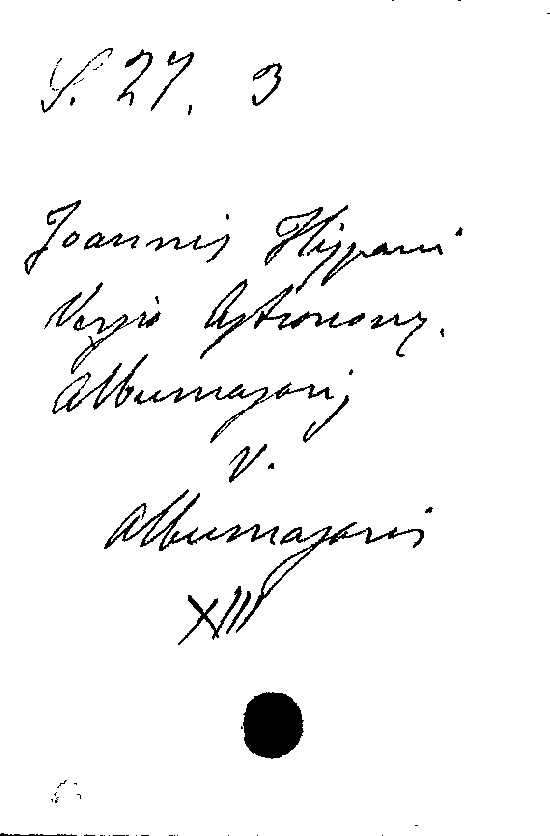 S. 27. 3
Joannis Hispani
Versio Astronom.
Albumasaris
V.
Albumasaris
XIII